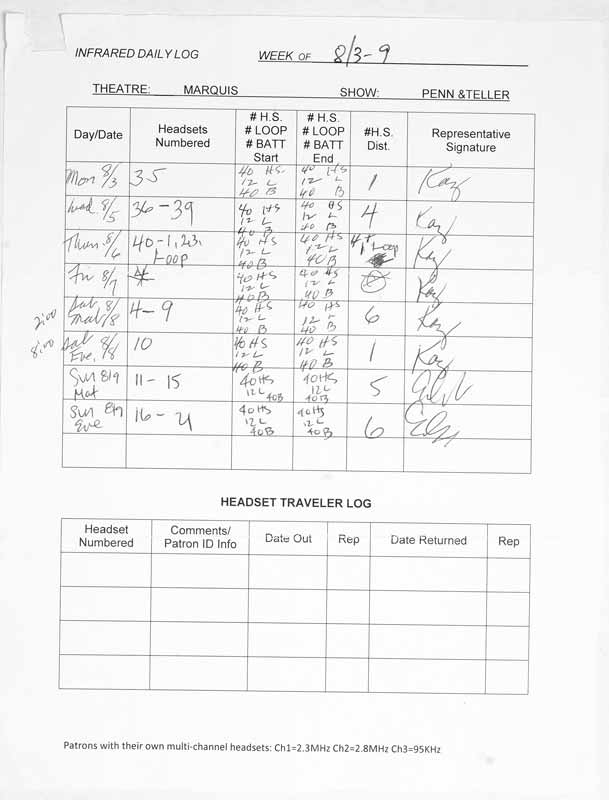 INFRARED DAILY LOG WEEK OF 8/3-9
THEATRE: MARQUIS SHOW: PENN &TELLER
Day/Date Headsets Numbered # H.S. # LOOP # BATT Start # H.S. # LOOP # BATT End #H.S. Dist. Representative Signature
Mon 8/3 35 40 HS. 12 L 40 B 40 HS 12 L 40 B 1 Kay
Wed. 8/5 36-39 40 HS 12 L 40 B 40 HS 12 L 40 B 4 Kay
Thurs. 8/6 40-1,2,3, Loop 40 HS 12 L 40 B 40 HS 12 L 40 B 4+ 1 Loop Kay
Fri 8/7 40 HS 12 L 40 B 40 HS 12 L 40 B Kay
2:00 Sat. 8/8 Mat 4-9 40 HS 12 L 40 B 40 HS 12 L 40 B 6 Kay
8:00 Sat Eve. 8/8 10 40 HS 12 L 40 B 40 HS 12 L 40 B 1 Kay
Sun 8/9 Mat 11-15 40 HS 12 L 40B 40HS 12L 40B 5
Sun 8/9 Eve 16-21 40HS 12L 40B 40HS 12L 40B 6
HEADSET TRAVELER LOG
Headset Numbered Comments/ Patron ID Info Date Out Rep Date Returned Rep
Patrons with their own multi-channel headsets: Ch1=2.3MHz Ch2=2.8MHz Ch3=95KHz